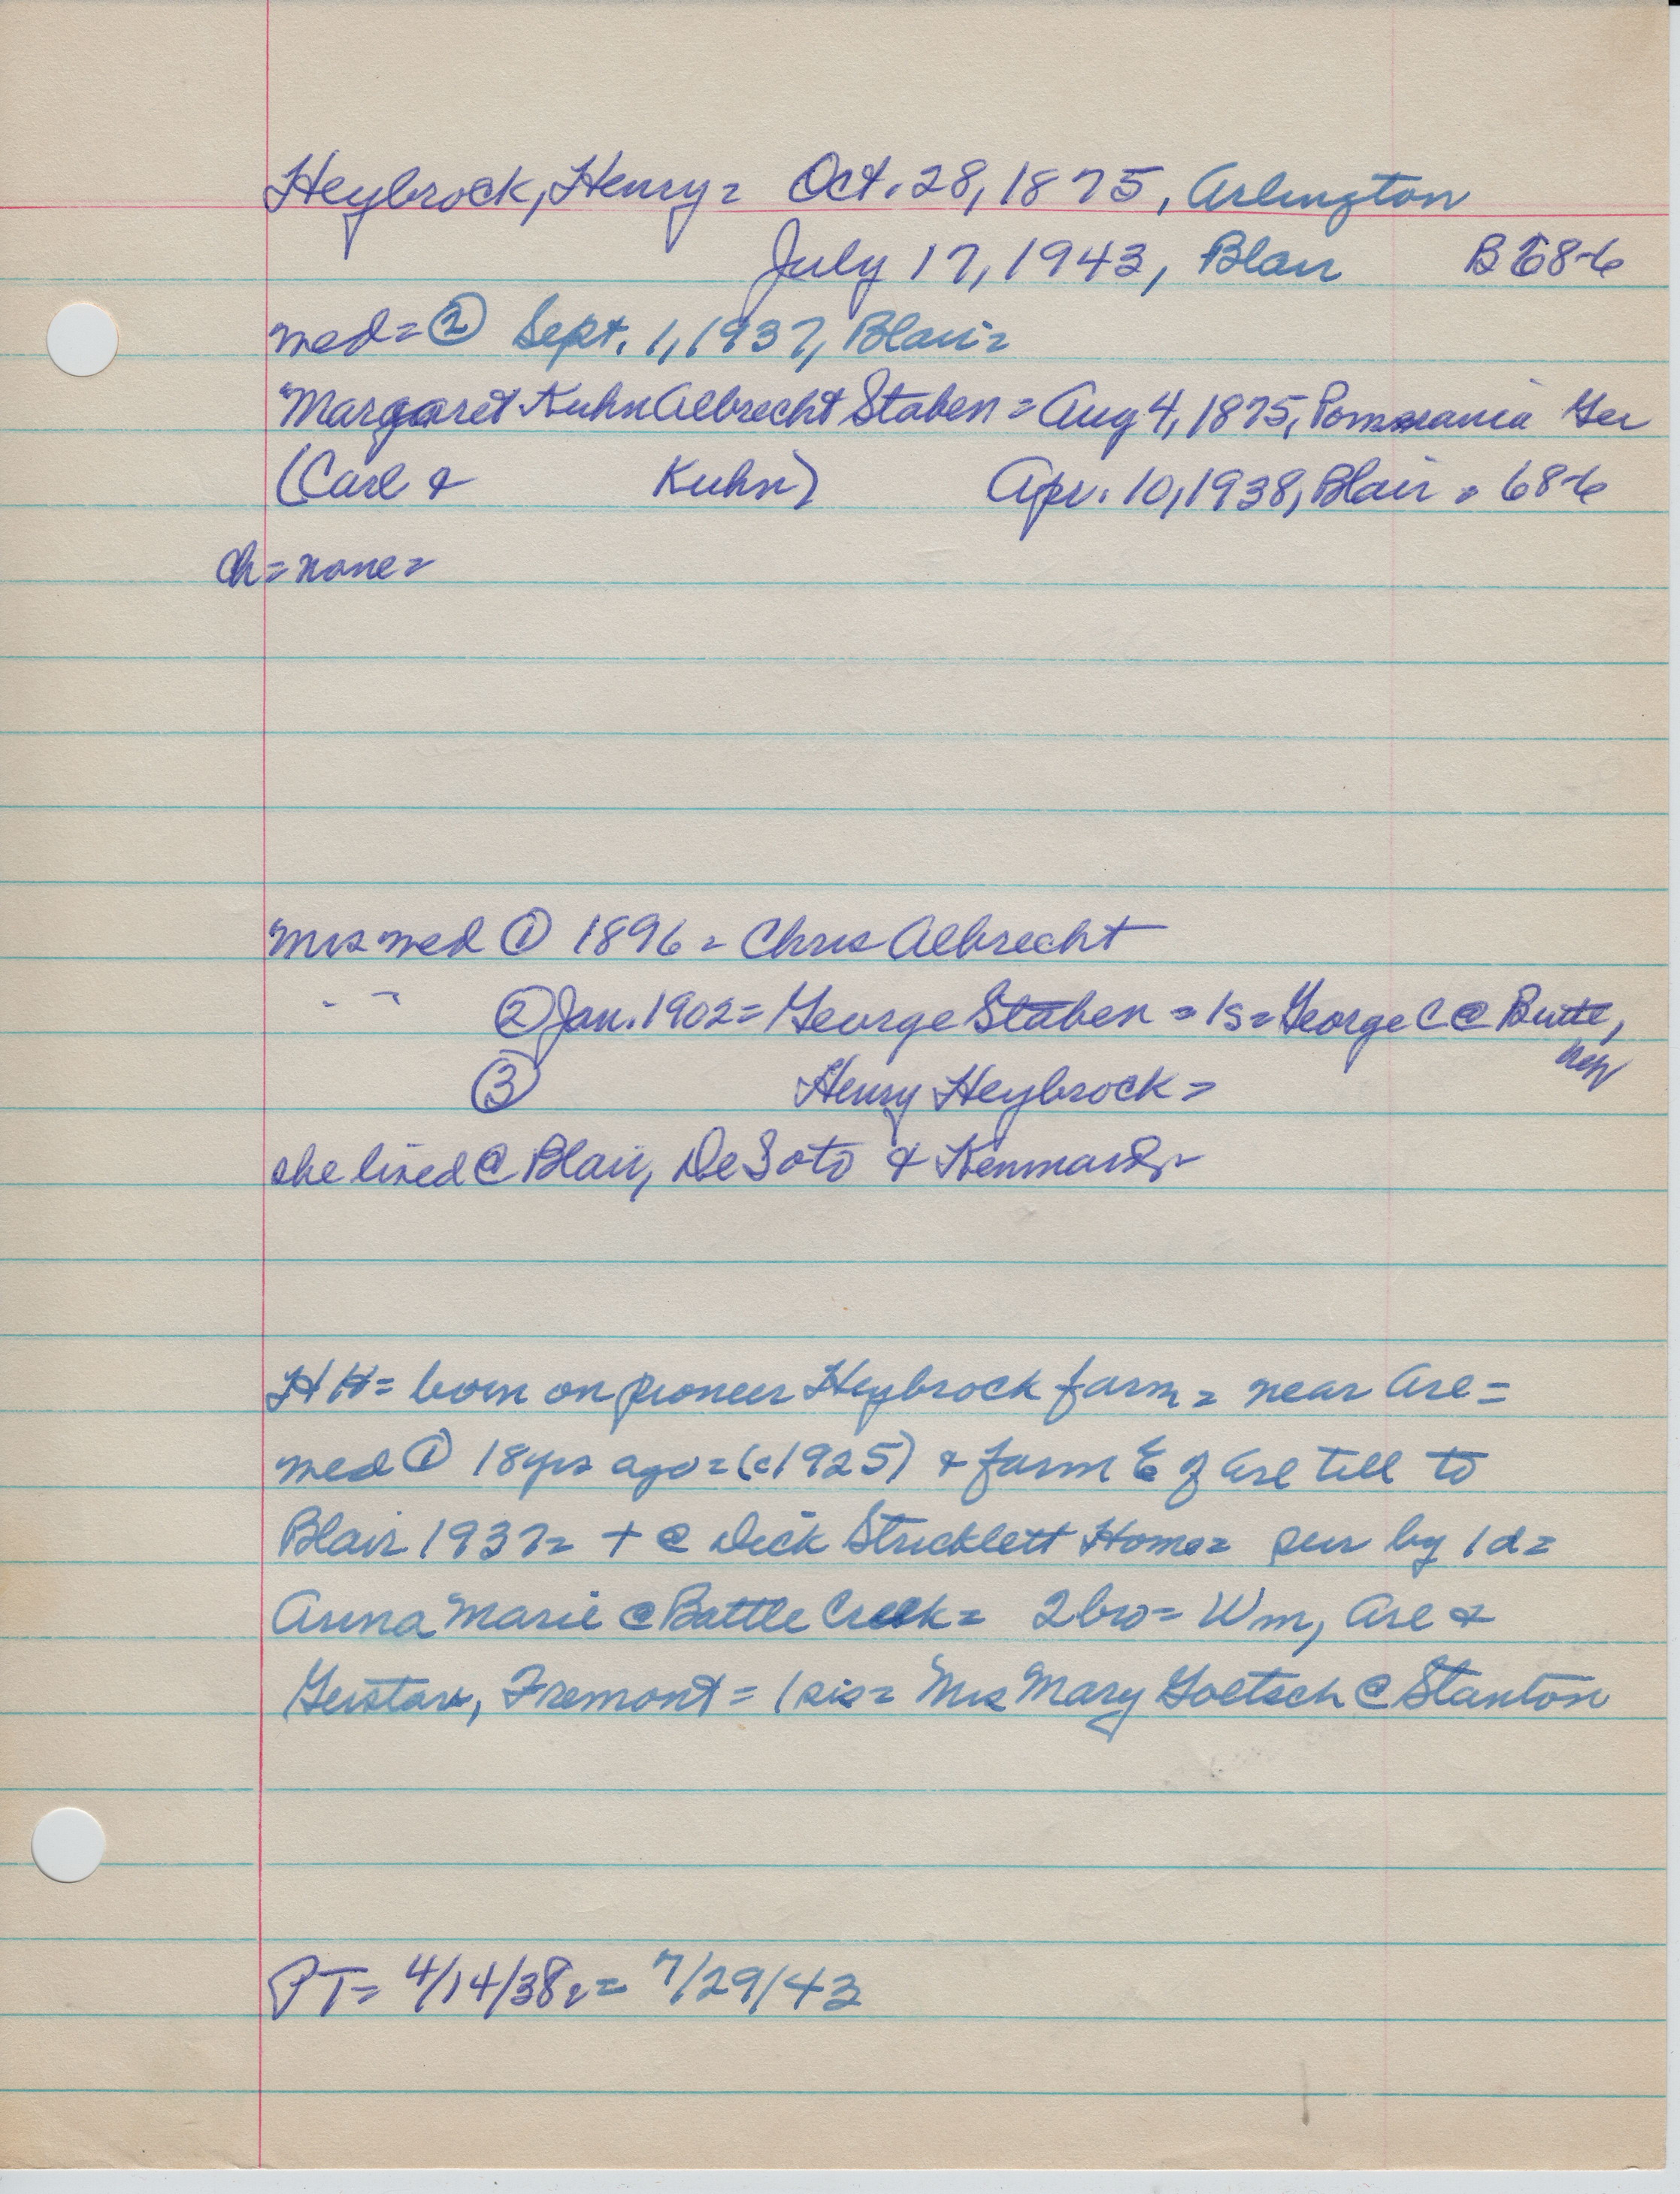 Heybrock, Henry = Oct. 28, 1875, Arlington
July 17, 1943, Blair B 68-6
med = ② Sept. 1, 1937, Blair =
Margaret Kuhn Albrecht Staben = Aug 4, 1875, Pommerania Ger
(Carl & Kuhn) Apr. 10, 1938, Blair = 68-6
ch = none =
Mrs med ① 1896 = Chris Albrecht
" " ② Jan. 1902 = George Staben = 1s = George C @ Butte,
③ Henry Heybrock =
she lived @ Blair, De Soto & Kennard =
HH = born on pioneer Heybrock farm = near Arl =
med ① 18 yrs ago = (c1925) & farm E of Arl till to
Blair 1937 = + @ Dick Stricklett Home = sur by 1d =
Anna Marie @ Battle Creek = 2 bro = Wm, Arl &
Gustav, Fremont = 1 sis = Mrs Mary Goetsch @ Stanton
PT = 4/14/38 = = 7/29/43